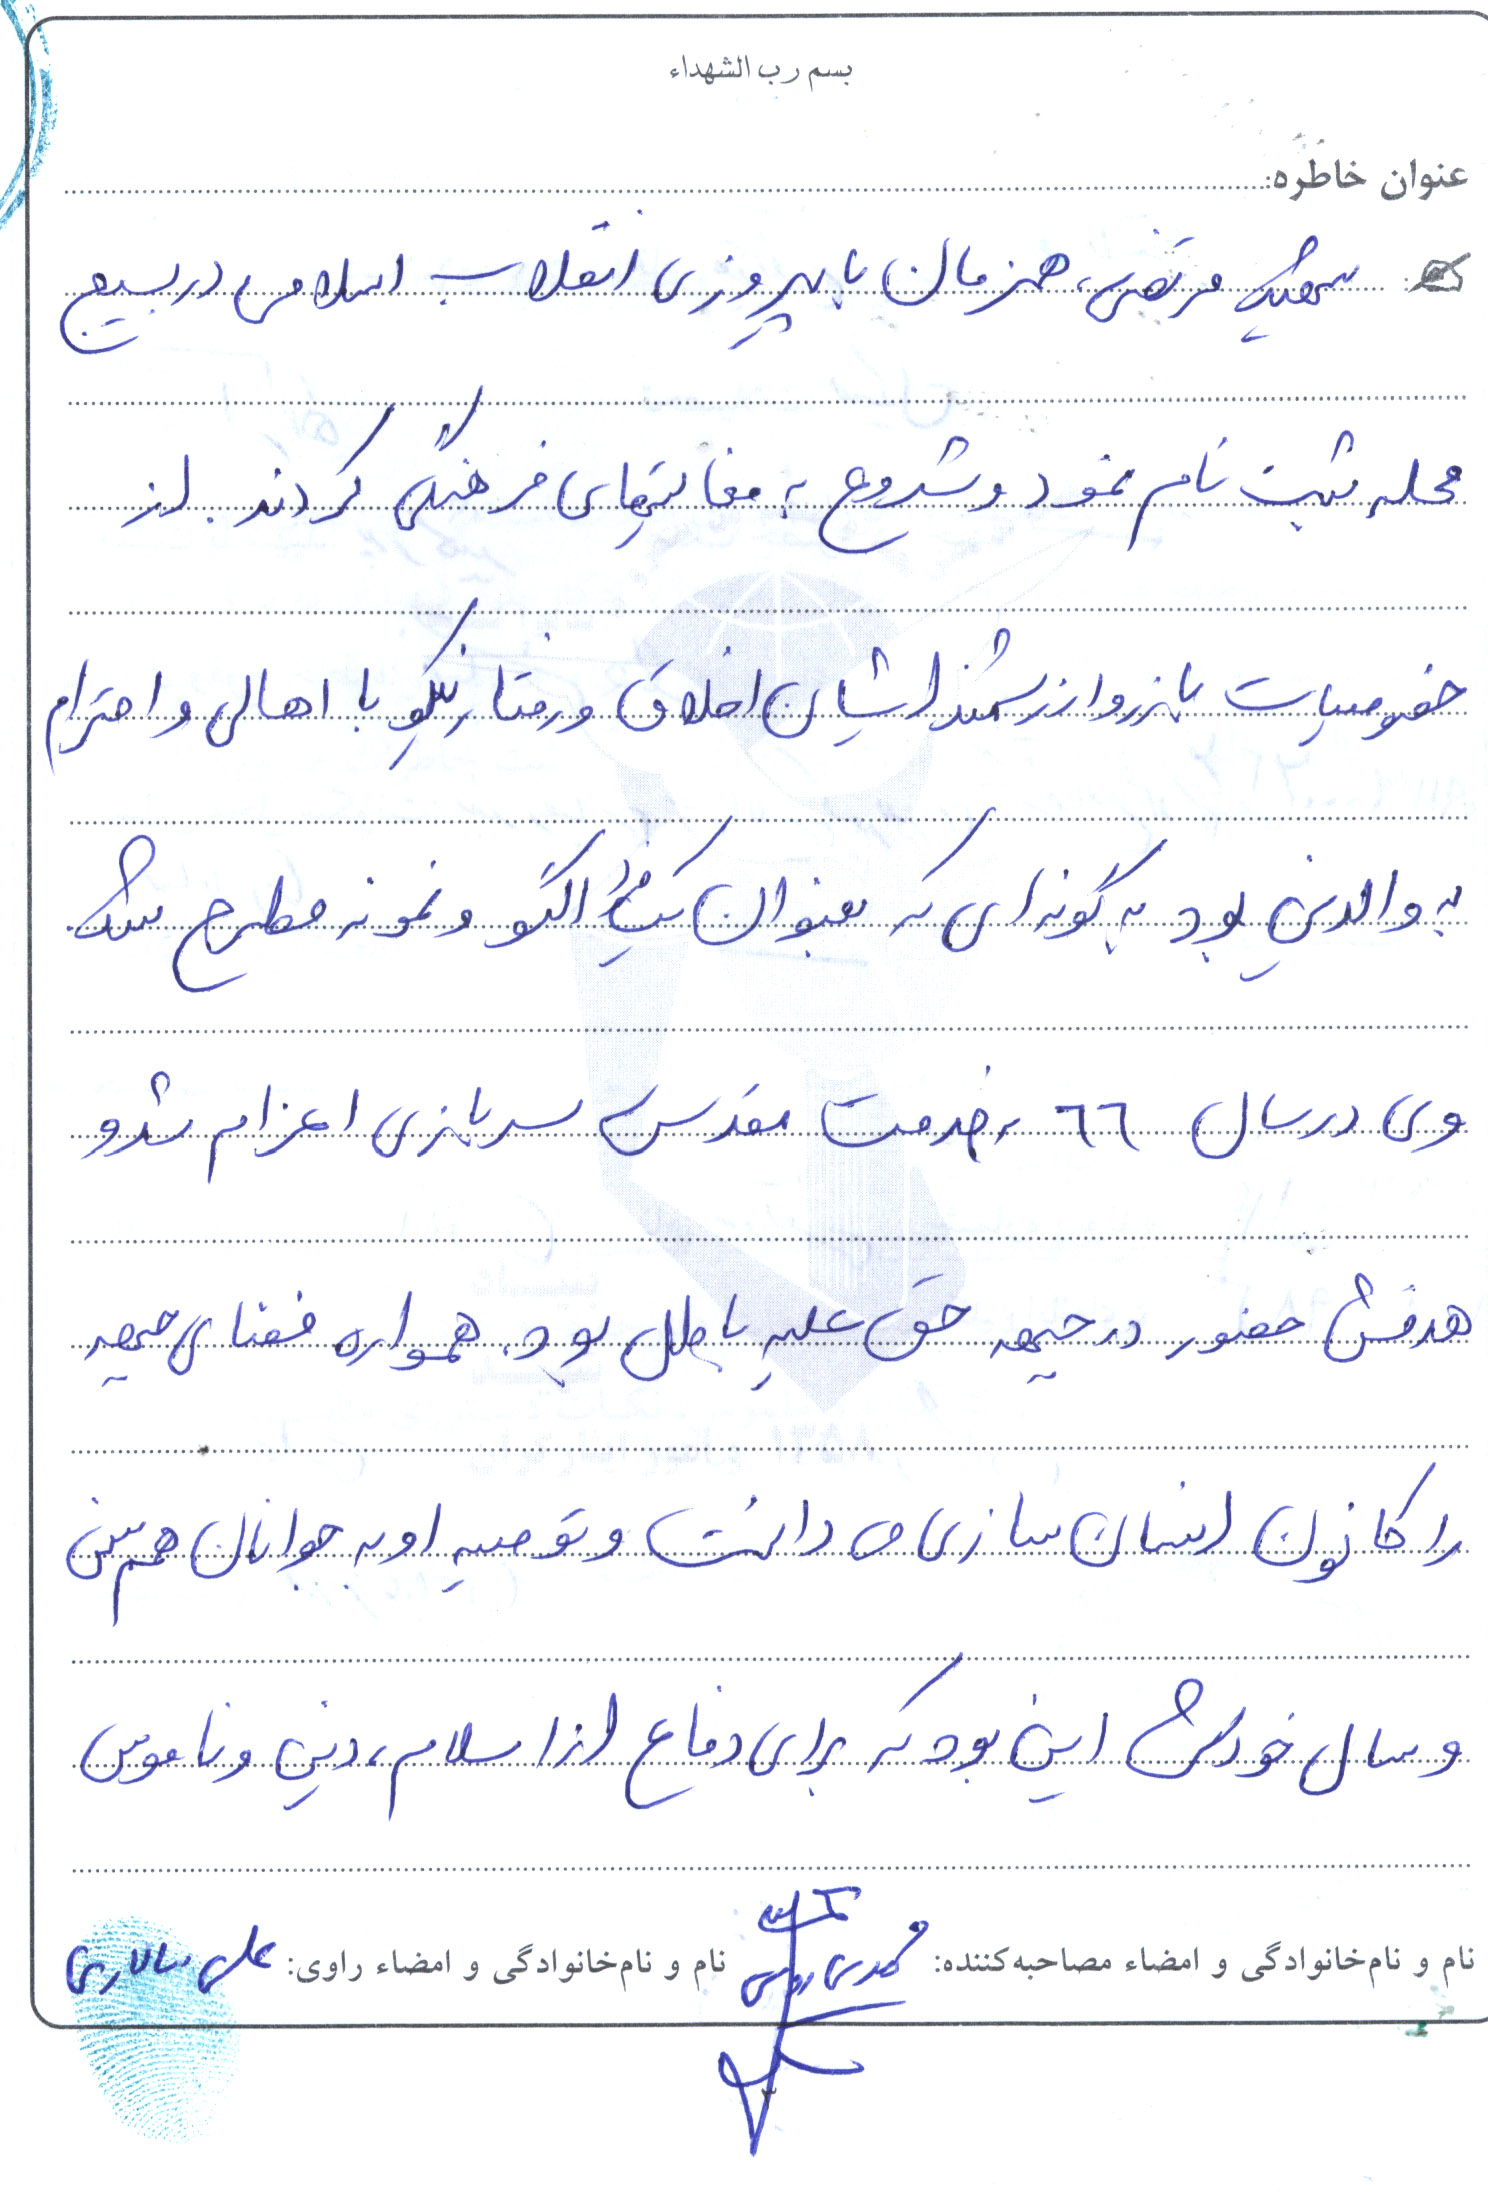 بسم رب الشهداء
عنوان خاطره:
شهید مرتضی، همزمان با پیروزی انقلاب اسلامی در بسیج
محله ثبت نام نمود و شروع به فعالیتهای فرهنگی کردند. از
خصوصیات بارز و ارزشمند ایشان اخلاق و رفتار نیکو با اهالی و احترام
به والدین بود به گونه‌ای که بعنوان یک فرد الگو و نمونه مطرح شد
وی در سال ٦٦ به خدمت مقدس سربازی اعزام شد و
هدفش حضور در جبهه حق علیه باطل بود. همواره فضای جبهه
را کانون انسان سازی می دانست و توصیه او به جوانان هم سن
و سال خودش این بود که برای دفاع از اسلام، دین و ناموس
نام و نام‌خانوادگی و امضاء مصاحبه‌کننده:
نام و نام‌خانوادگی و امضاء راوی: علی سالاری
۳